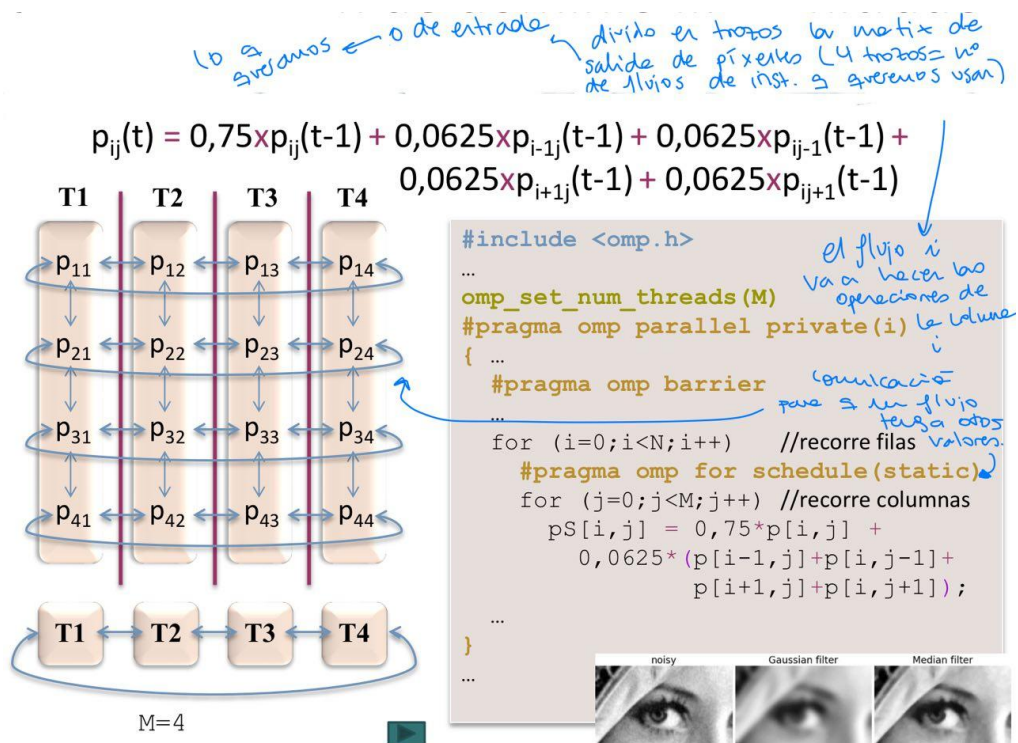 lo q
queramos
o de entrada
divido en trozos la matix de
salida de píxeles (4 trozos = nº
de flujos de inst. q queremos usar)
pij(t) = 0,75xpij(t-1) + 0,0625xpi-1j(t-1) + 0,0625xpij-1(t-1) +
0,0625xpi+1j(t-1) + 0,0625xpij+1(t-1)
T1 T2 T3 T4
p11 p12 p13 p14
p21 p22 p23 p24
p31 p32 p33 p34
p41 p42 p43 p44
T1 T2 T3 T4
M=4
#include <omp.h>
…
omp_set_num_threads(M)
#pragma omp parallel private(i)
{ …
#pragma omp barrier
…
for (i=0;i<N;i++) //recorre filas
#pragma omp for schedule(static)
for (j=0;j<M;j++) //recorre columnas
pS[i,j] = 0,75*p[i,j] +
0,0625*(p[i-1,j]+p[i,j-1]+
p[i+1,j]+p[i,j+1]);
…
}
…
el flujo i
va a hacer las
operaciones de
la columna
i
para q un flujo
tenga otros
valores.
noisy Gaussian filter Median filter